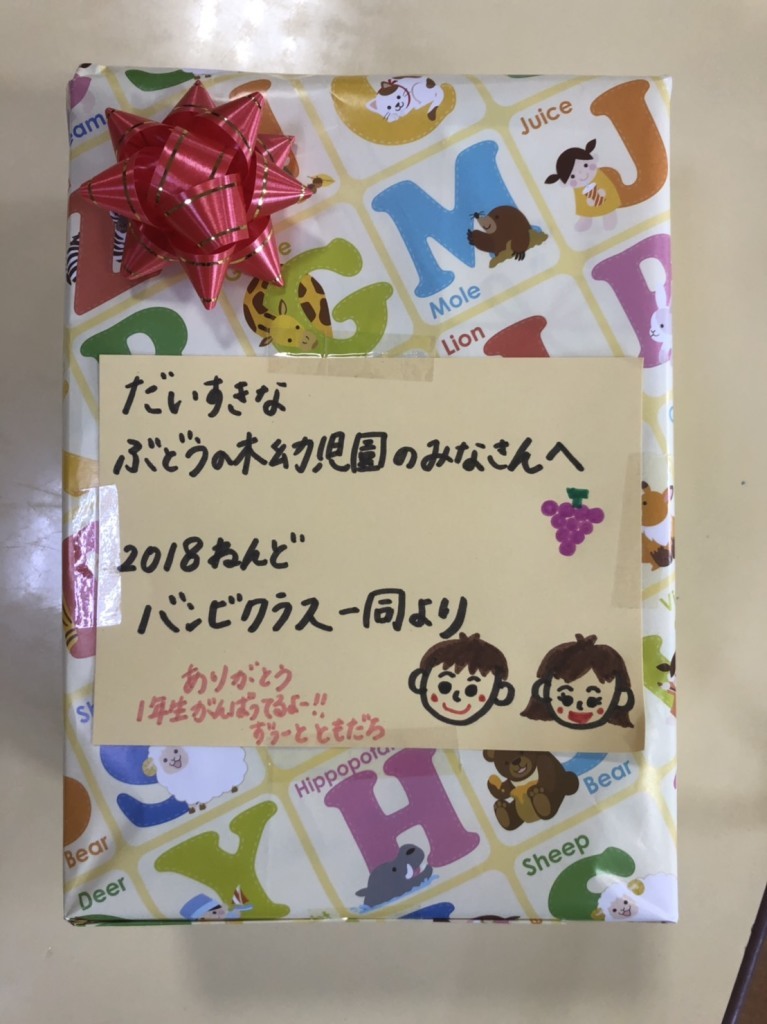 eam
Juice
Mole
Lion
だいすきな
ぶどうの木幼児園のみなさんへ
2018ねんど
バンビクラス一同より
ありがとう
1年生がんばってるよー!!
ずぅーとともだち
Hippopota
Bear
Bear
Sheep
Deer